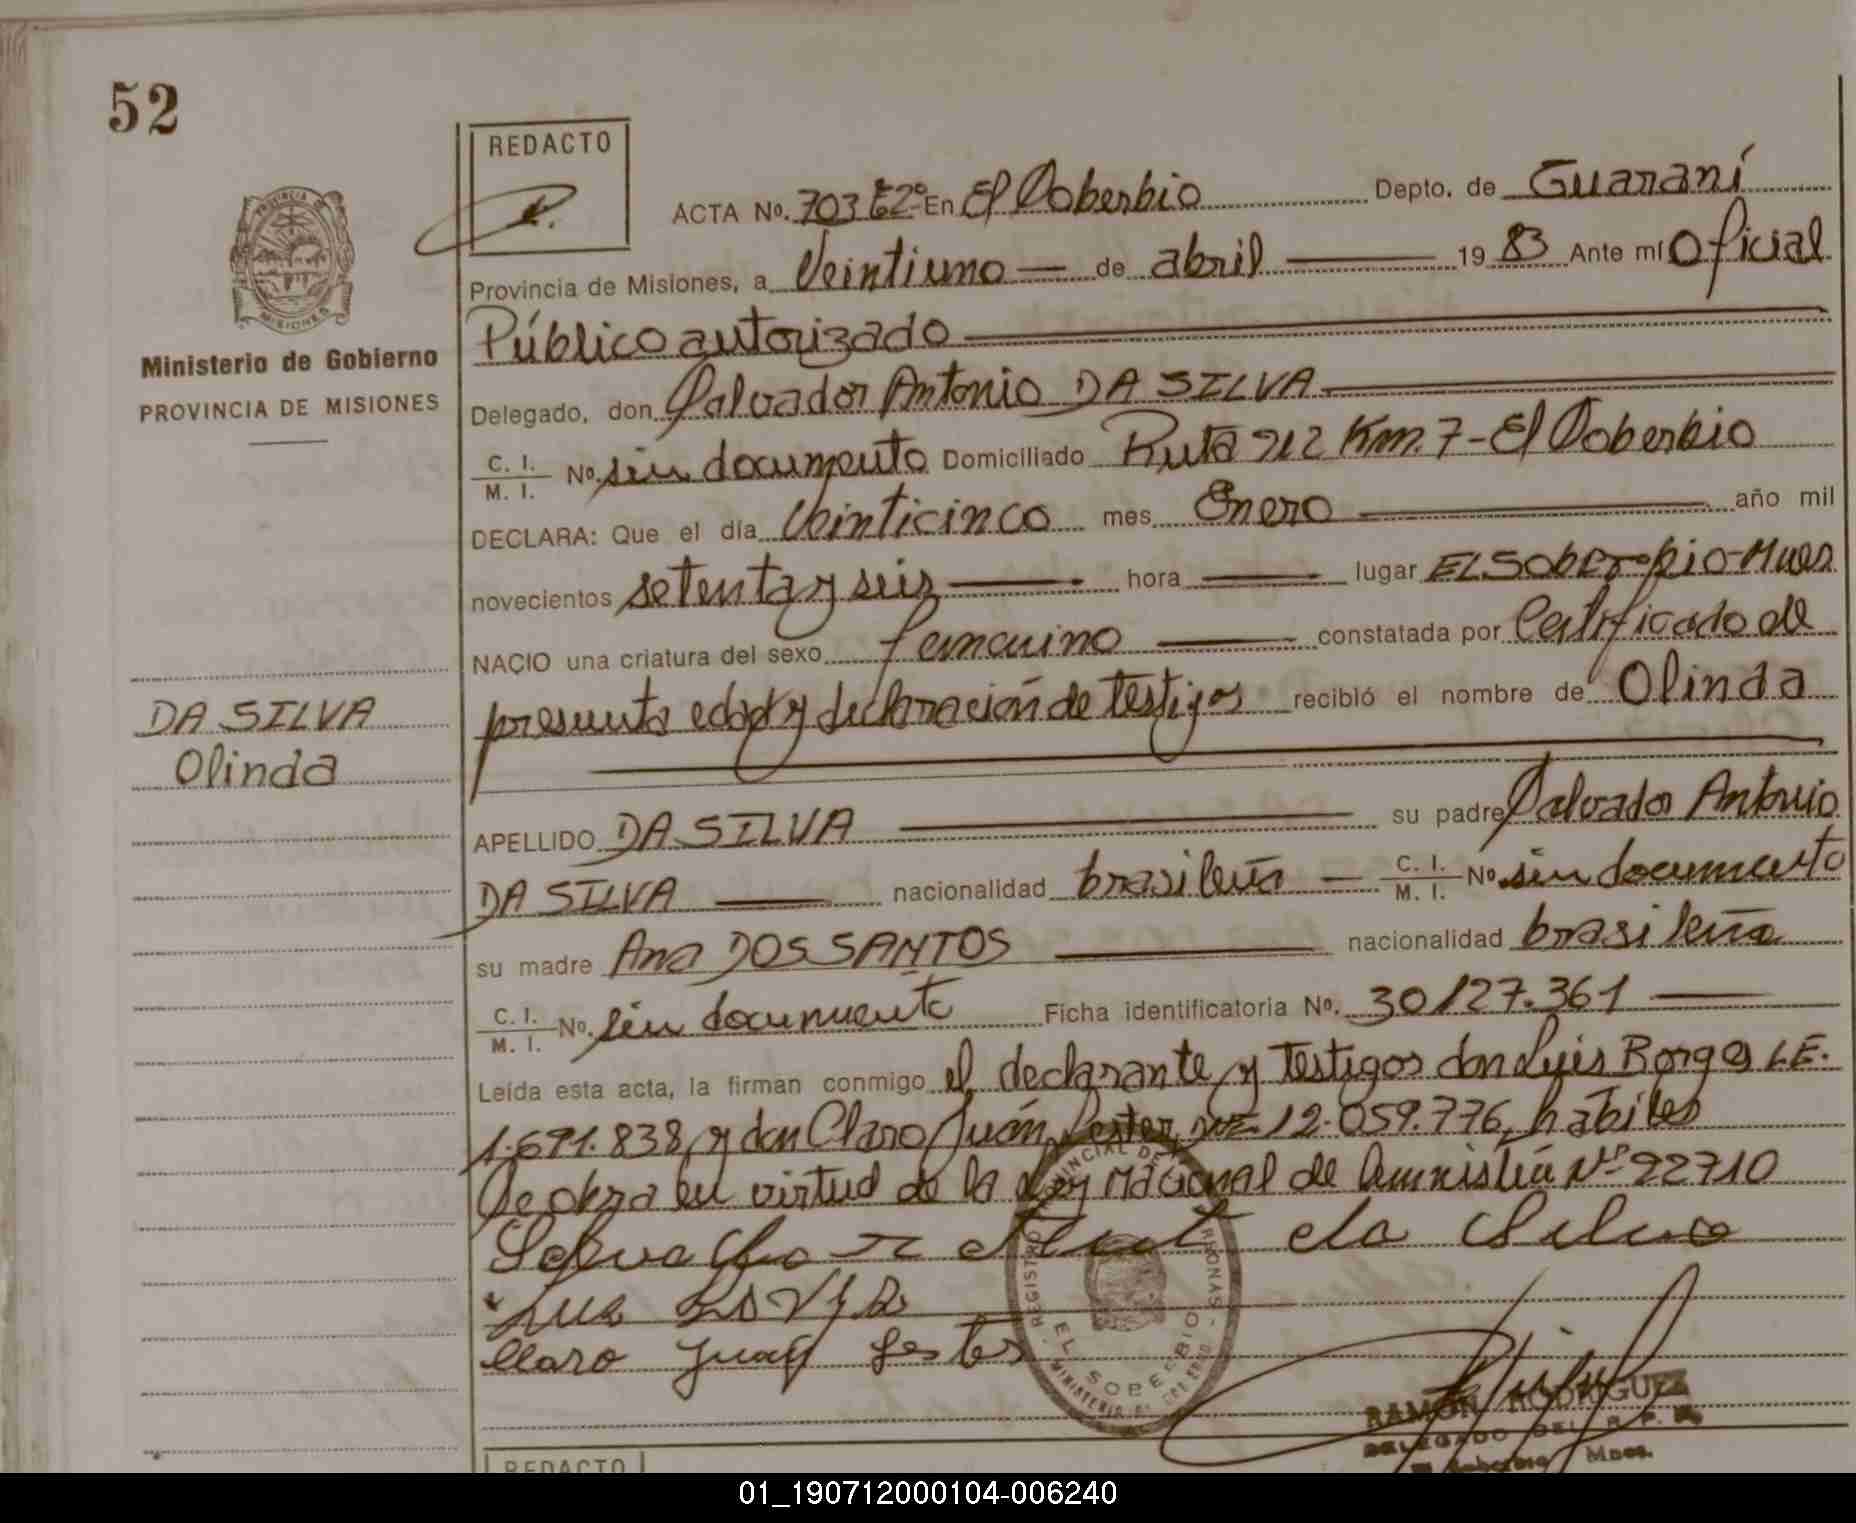 52
REDACTO
ACTA No. 703 t2º En El Soberbio Depto. de Guaraní
PROVINCIA DE
MISIONES
Provincia de Misiones, a Veintiuno — de abril — 19 83 Ante mí Oficial
Público autorizado
Ministerio de Gobierno
PROVINCIA DE MISIONES
Delegado, don Salvador Antonio DA SILVA
C. I. / M. I. No. sin documento Domiciliado Ruta 212 Km. 7 - El Soberbio
DECLARA: Que el día Veinticinco mes Enero año mil
novecientos setenta y seis hora — lugar EL Soberbio-Mnes
NACIO una criatura del sexo femenino constatada por Certificado de
presunta edad y declaración de testigos recibió el nombre de Olinda
DA SILVA
Olinda
APELLIDO DA SILVA su padre Salvador Antonio
DA SILVA — nacionalidad brasileña — C. I. / M. I. No. sin documento
su madre Ana DOS SANTOS nacionalidad brasileña
C. I. / M. I. No. sin documento Ficha identificatoria No. 30127.361 —
Leída esta acta, la firman conmigo el declarante y testigos don Luis Borges L.E.
1.691.838 y don Claro Juán 12.059.776, hábiles
Se obra en virtud de la Ley Nacional de Amnistía Nº 22710
da Silva
Claro Juan
REGISTRO PROVINCIAL DE PERSONAS
EL SOBERBIO
MINISTERIO DE GOBIERNO
RAMON RODRIGUEZ
DELEGADO DEL R. P.
El Soberbio Mnes.
REDACTO
01_190712000104-006240